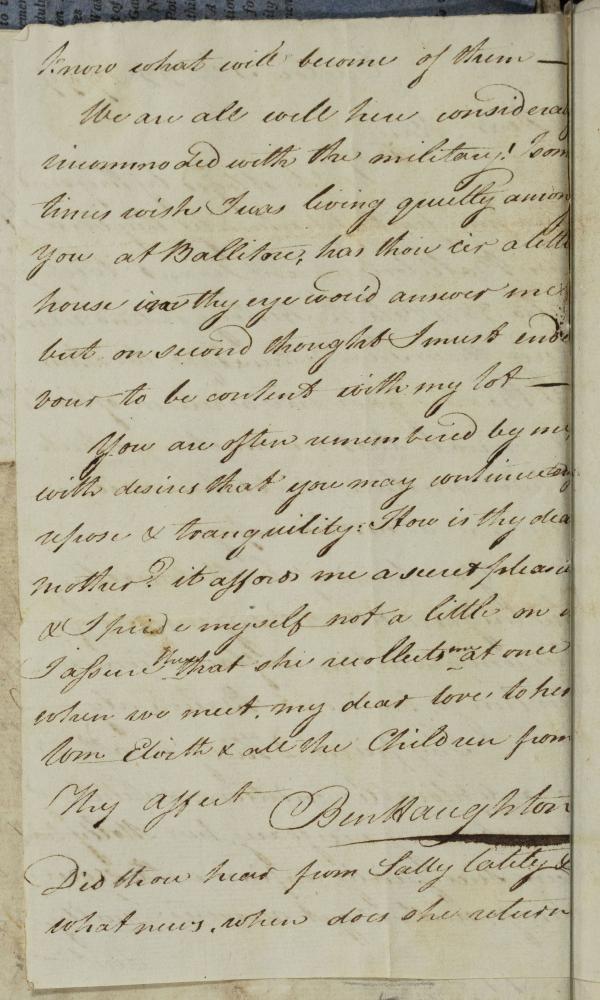 know what will become of them —
We are all well here considera
incommoded with the military! som
times wish I was living quietly among
you at Ballitore, has thou e'er a little
house in thy eye would answer me
but on second thought I must end
vour to be content with my lot —
You are often remembered by me,
with desires that you may continue
repose & tranquility: How is thy dea
mother? it affords me a secret pleasu
& I pride myself not a little on
I assure thee that she recollects me at once
when we meet. my dear love to her
Tom Eliz:th & all the Children from
Thy affect
Ben Haughton
Did thou hear from Sally &
what news, when does she return